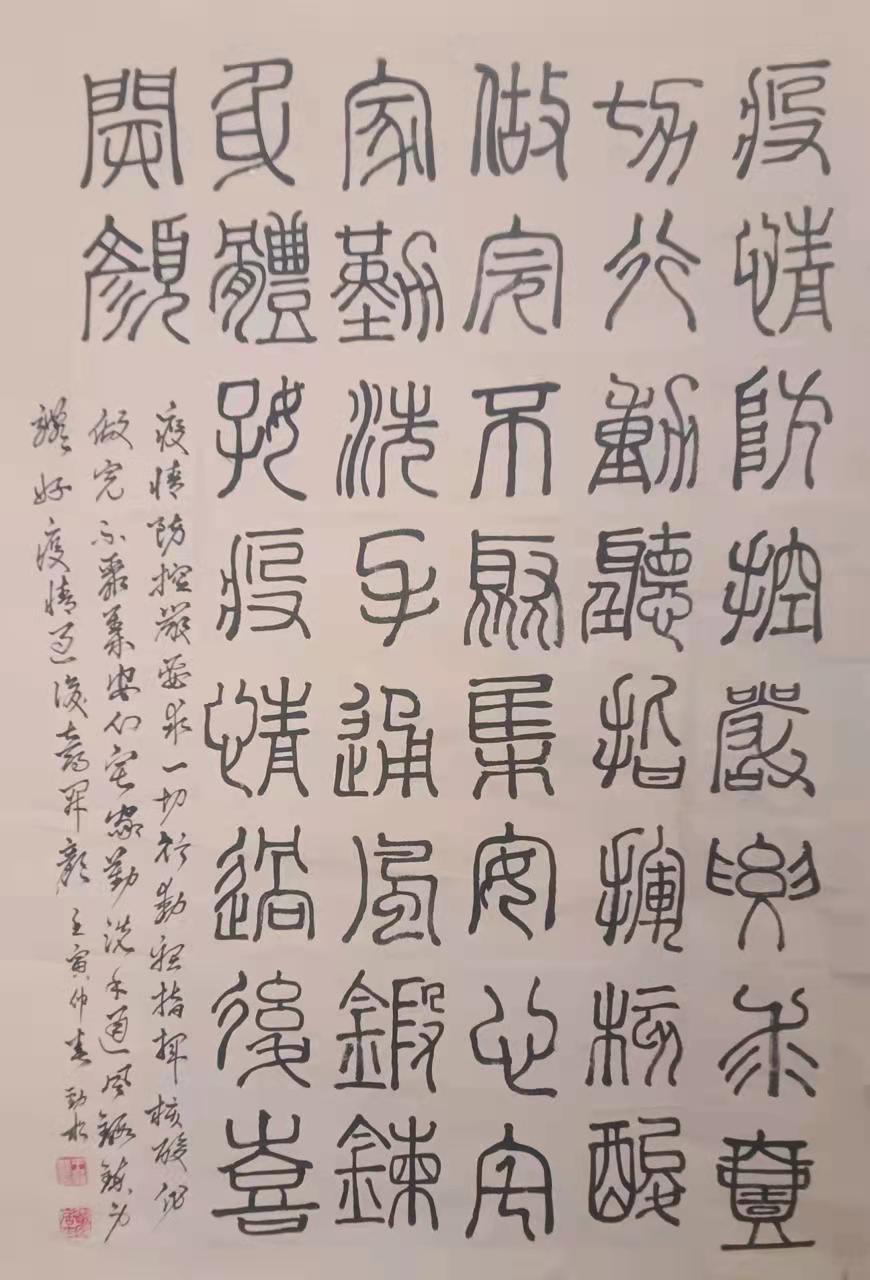 疫情防控嚴要求壹
切行動聽指揮核酸
做完不聚集安心宅
家勤洗手通風鍛鍊
身體好疫情過後喜
開顏
疫情防控嚴要求一切行動聽指揮核酸做
做完不聚集安心宅家勤洗手通風鍛鍊身
體好疫情過後喜開顏 壬寅仲春 勁松